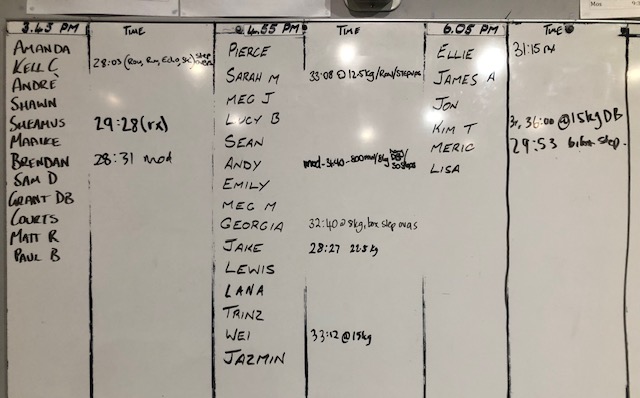 3.45 PM TIME
AMANDA
KELL C 28:03 (Row, Run, Echo, Ski) step overs
ANDRÉ
SHAWN
SHEAMUS 29:28 (rx)
MARIKE
BRENDAN 28:31 mod
SAM D
GRANT DB
COURTS
MATT R
PAUL B
4.55 PM TIME
PIERCE
SARAH M 33:08 @ 12.5kg/Row/Stepups
MEG J
LUCY B
SEAN
ANDY mod-34:40-800row/8kg
30 steps
EMILY
MEG M
GEORGIA 32:40 @ 8kg, box step overs
JAKE 28:27 22.5kg
LEWIS
LANA
TRINZ
WEI 33:12 @ 15kg
JAZMIN
6.05 PM TIME
ELLIE 31:15 rx
JAMES A
JON
KIM T 36:00 @ 15kg DB
MERIC 29:53 box step.
LISA